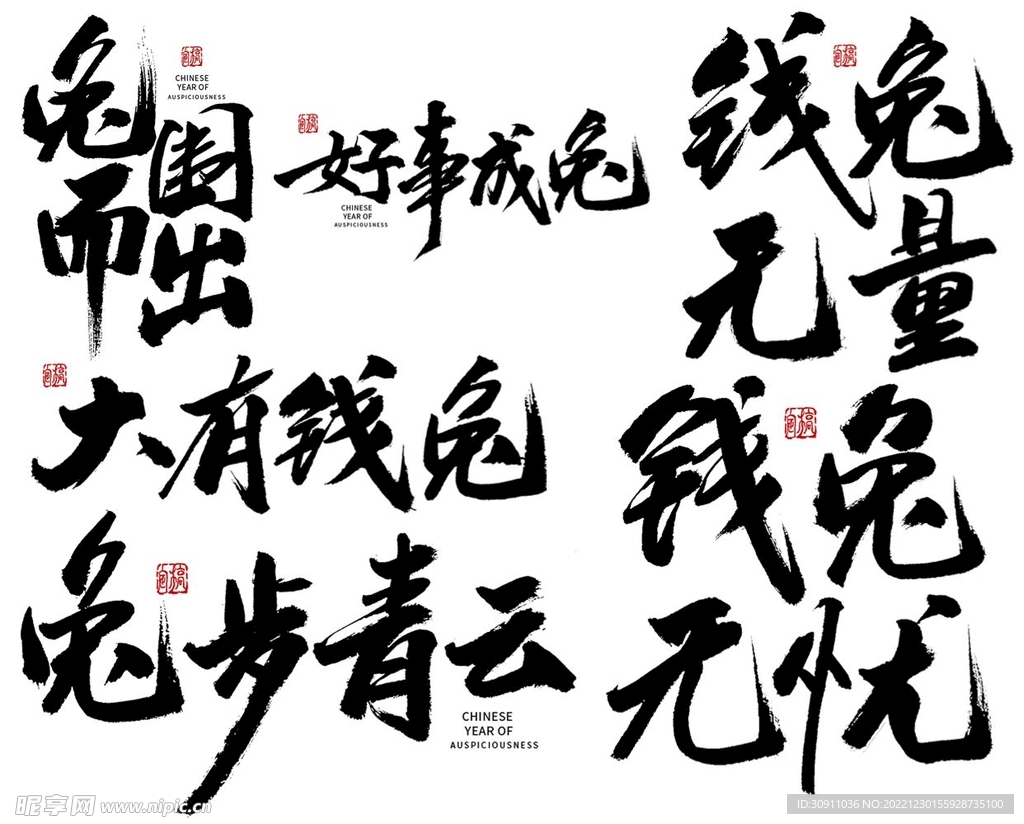 兔
而
围
出
CHINESE
YEAR OF
AUSPICIOUSNESS
好事成兔
CHINESE
YEAR OF
AUSPICIOUSNESS
钱兔
无量
大有钱兔
钱兔
无忧
兔步青云
CHINESE
YEAR OF
AUSPICIOUSNESS
昵享网 www.nipic.cn
ID:30911036 NO:20221230155928735100